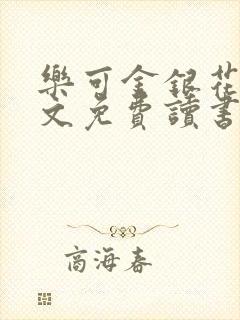 樂可金銀花
文免費讀書
商海春